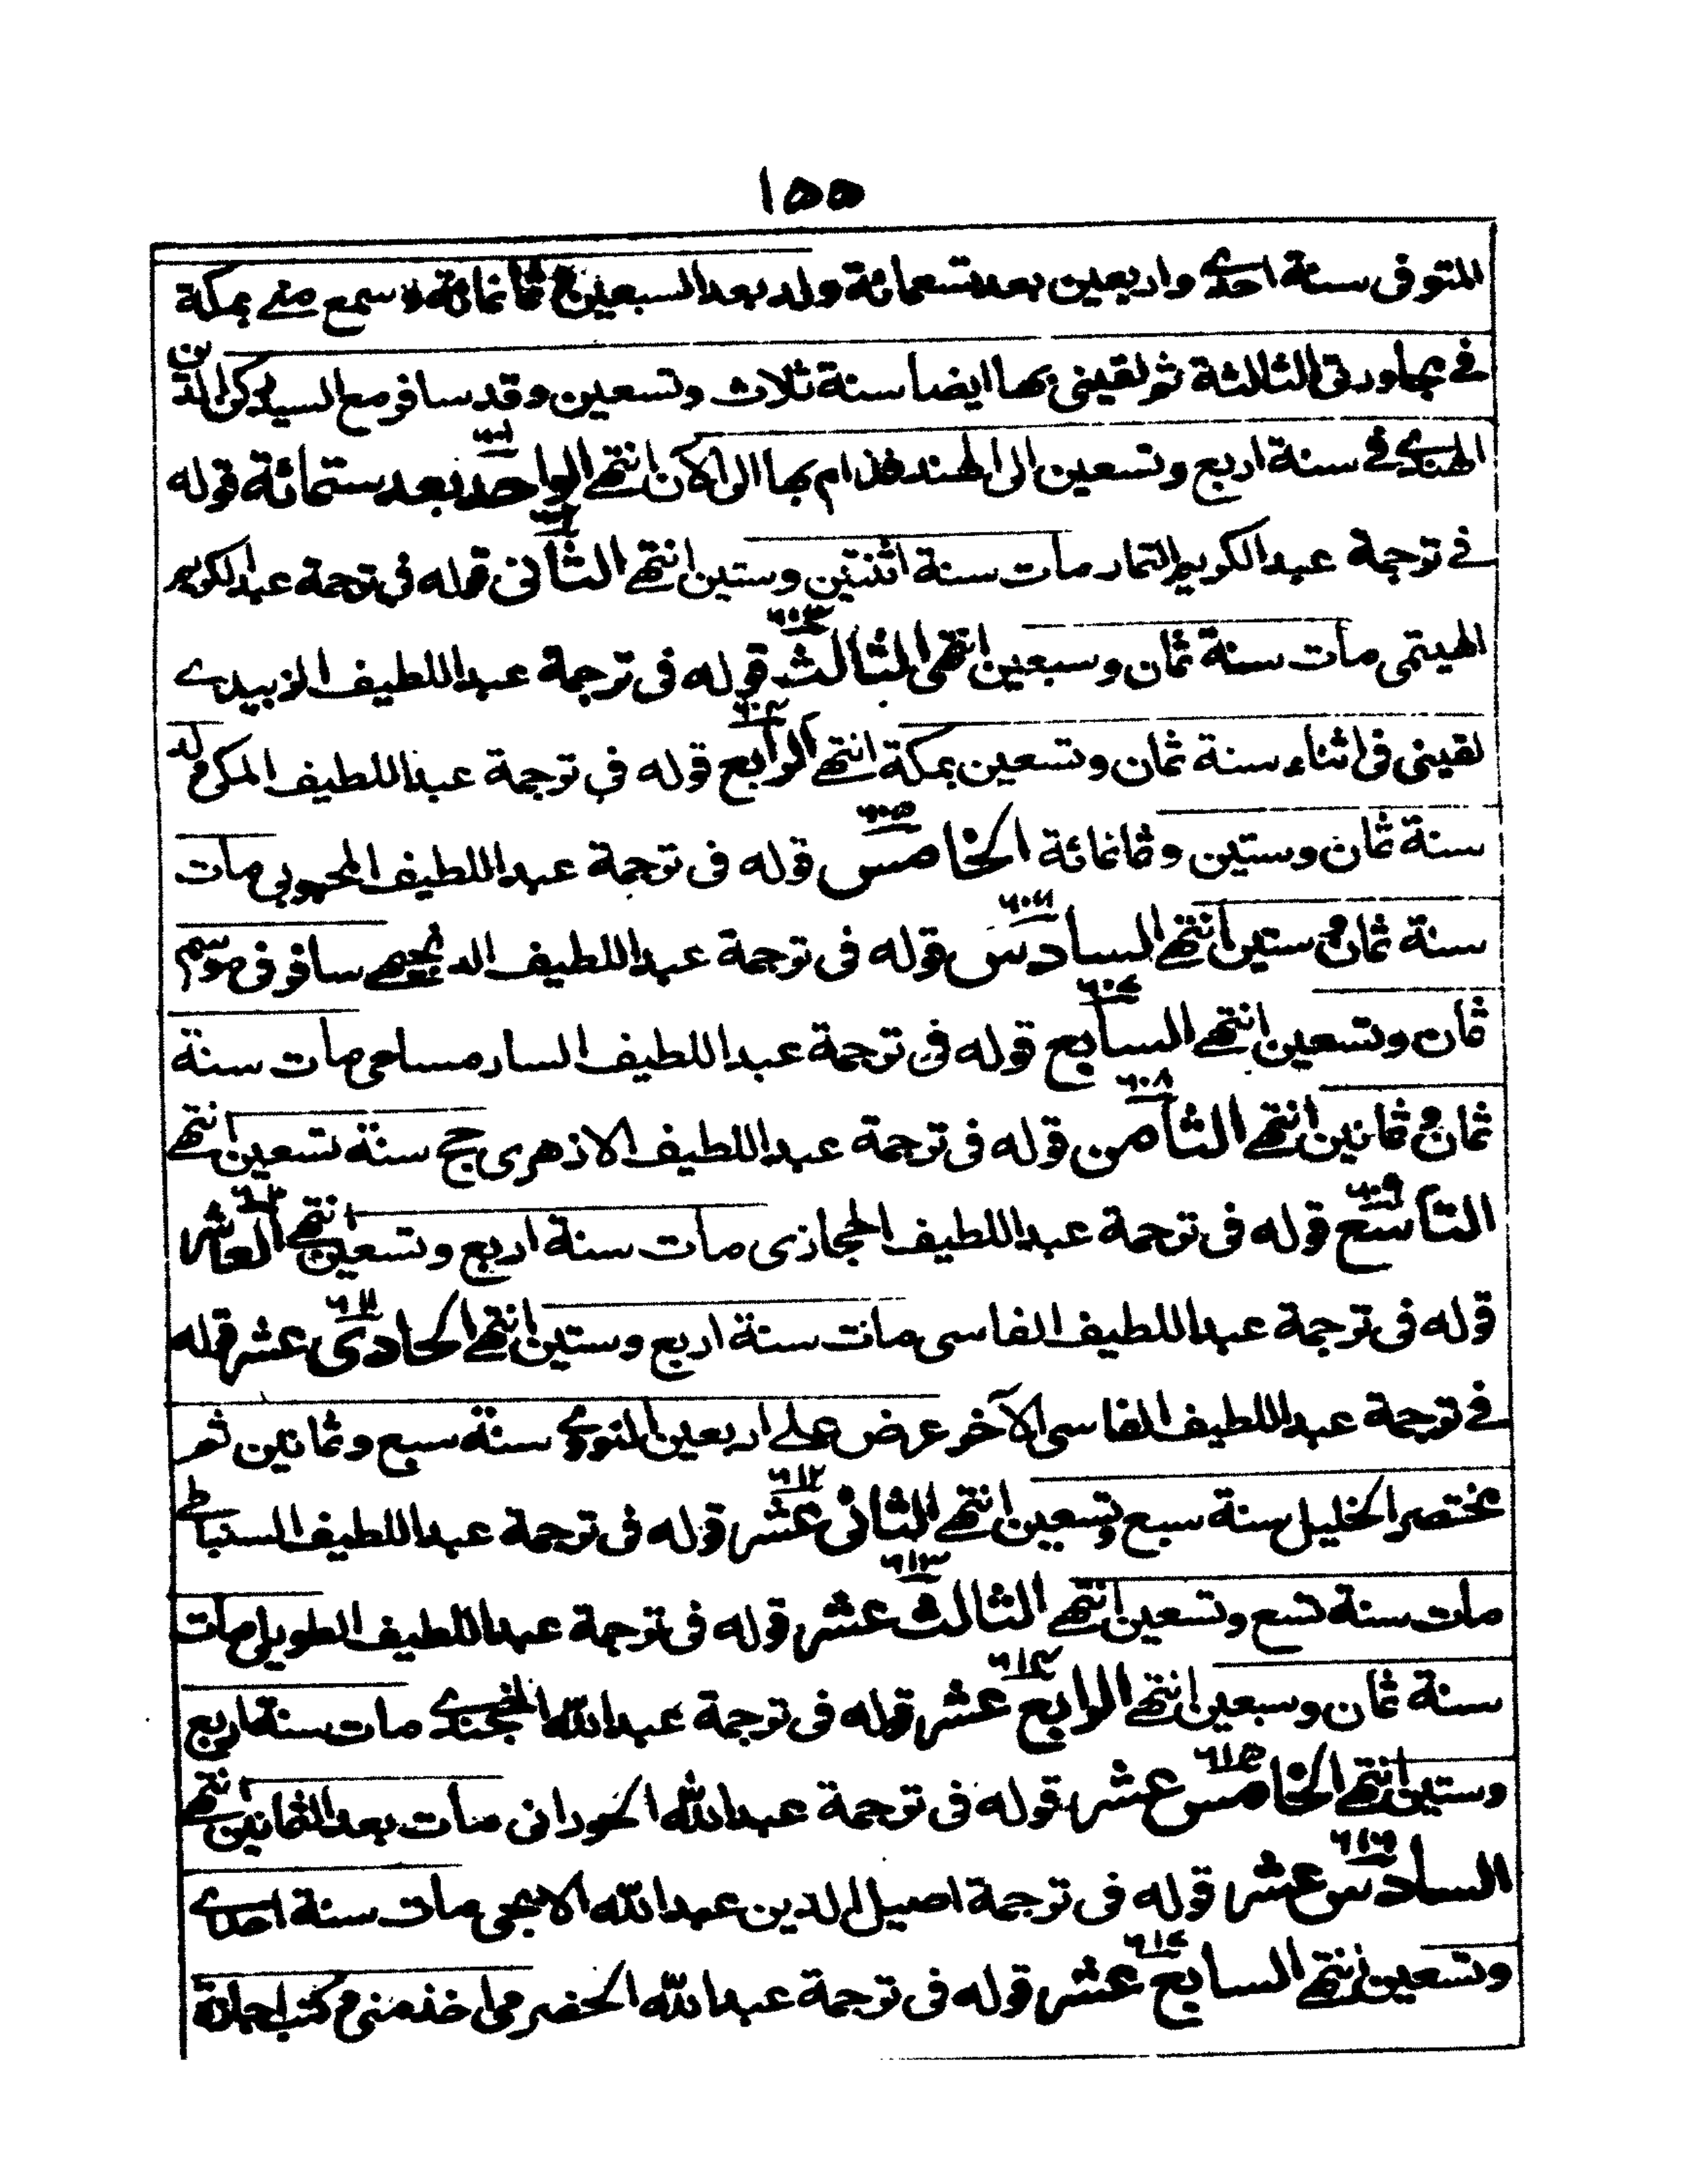 ١٥٥
المتوفى سنة احدى واربعين بعد تسعمائة ولد بعد السبعين و ثمانمائة سمع منے بمكة
فے مجاورتى الثالثة ثم لقينى بها ايضا سنة ثلاث وتسعين وقد سافر مع السيد الدين
الهندے فے سنة اربع وتسعين الى الهند فدام بها الى الآن انتهے الواحد بعد ستمائة قوله
٦٠١
فے ترجمة عبد الكريم التمار مات سنة اثنتين وستين انتهے الثانى قوله فى ترجمة عبد الكريم
٦٠٢
الهيتمى مات سنة ثمان وسبعين انتهى الثالث قوله فى ترجمة عبد اللطيف الزبيدے
٦٠٣
لقينى فى اثناء سنة ثمان وتسعين بمكة انتهے الرابع قوله فى ترجمة عبد اللطيف المكى ولد
٦٠٤
سنة ثمان وستين وثمانمائة الخامس قوله فى ترجمة عبد اللطيف المحبوبى مات
٦٠٥
سنة ثمان وستين انتهے السادس قوله فى ترجمة عبد اللطيف سافر فى موسم
٦٠٦
ثمان وتسعين انتهے السابع قوله فى ترجمة عبد اللطيف السارمساحى مات سنة
٦٠٧
ثمان وثمانين انتهے الثامن قوله فى ترجمة عبد اللطيف الازهرى حج سنة تسعين انتهے
٦٠٨
التاسع قوله فى ترجمة عبد اللطيف الحجازى مات سنة اربع وتسعين انتهے العاشر
٦٠٩
قوله فى ترجمة عبد اللطيف الفاسى مات سنة اربع وستين انتهے الحادى عشر قوله
٦١١
فے ترجمة عبد اللطيف الفاسى الآخر عرض علے اربعين النووى سنة سبع وثمانين ثم
مختصر الخليل سنة سبع وتسعين انتهے الثانى عشر قوله فى ترجمة عبد اللطيف السنباطے
٦١٢
مات سنة تسع وتسعين انتهے الثالث عشر قوله فى ترجمة عبد اللطيف الطويلى مات
٦١٣
سنة ثمان وسبعين انتهے الرابع عشر قوله فى ترجمة عبد الله الخجندے مات سنة اربع
٦١٤
وستين انتهے الخامس عشر قوله فى ترجمة عبد الله الحورانى مات بعد الثمانين انتهے
٦١٥
السادس عشر قوله فى ترجمة اصيل الدين عبد الله الايجى مات سنة احدے
٦١٦
وتسعين انتهے السابع عشر قوله فى ترجمة عبد الله الحضرمى اخذ منى و كتب اجازة
٦١٧